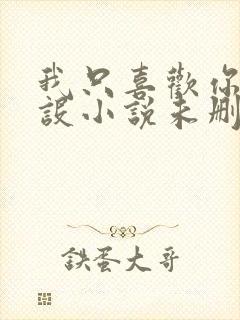 我只喜歡你
設小說未刪
鉄蛋大哥